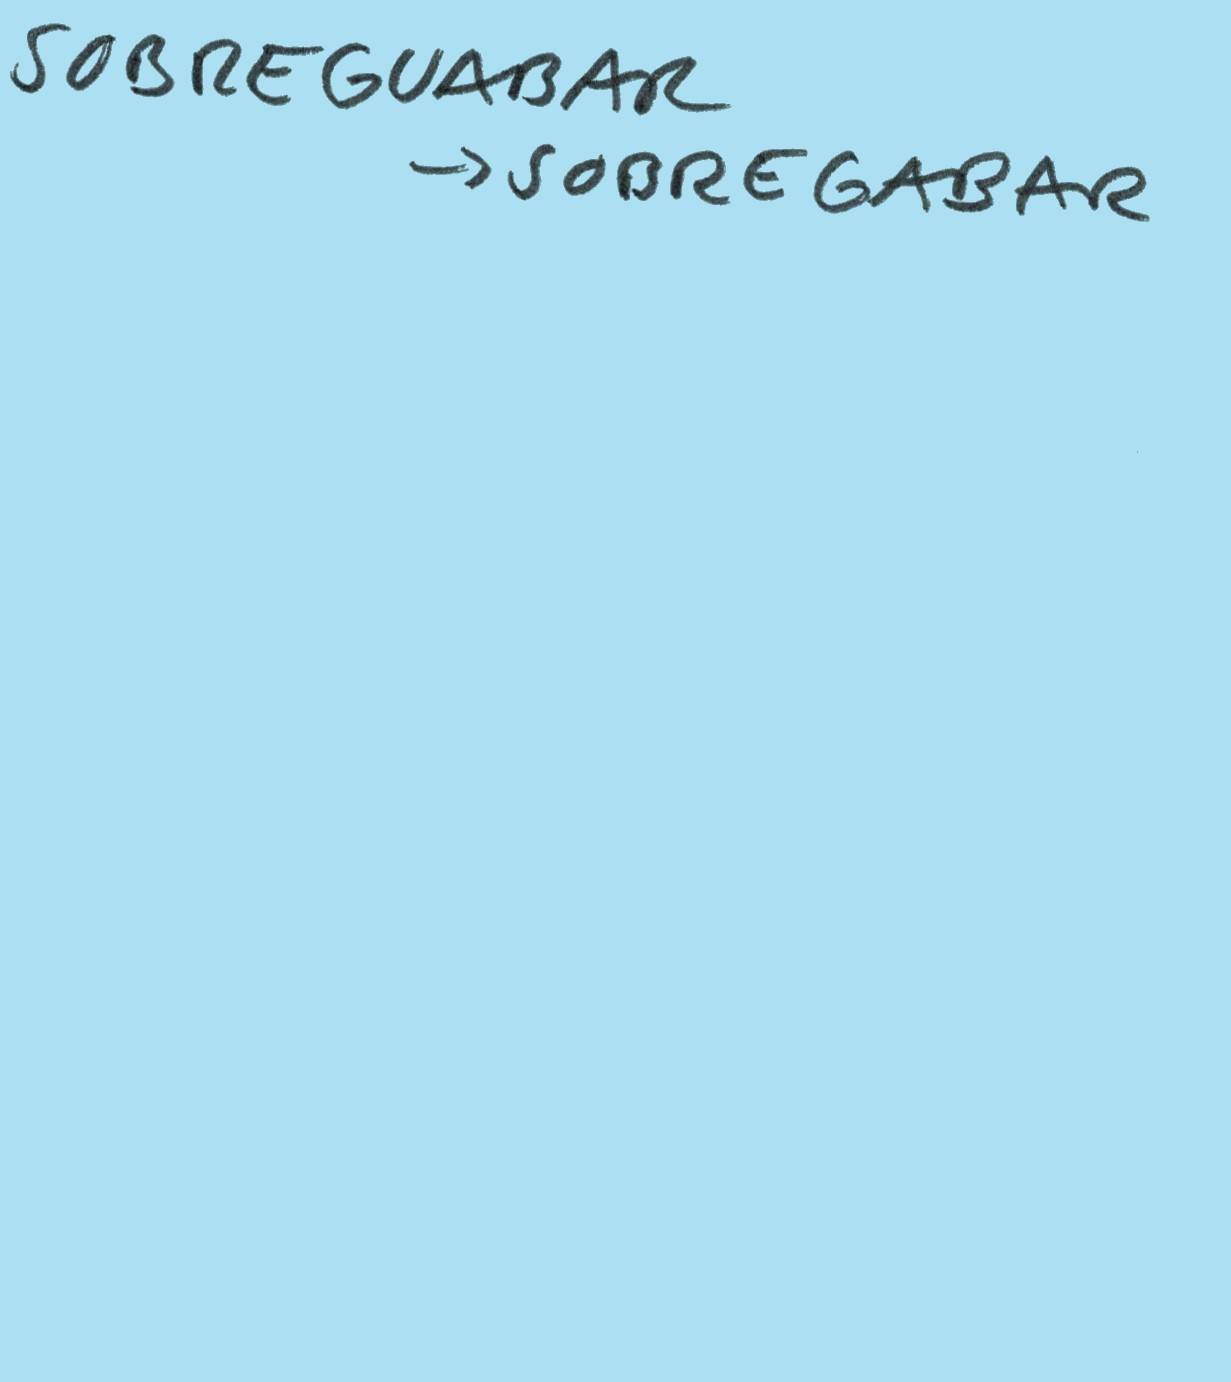 SOBREGUABAR
→SOBREGABAR